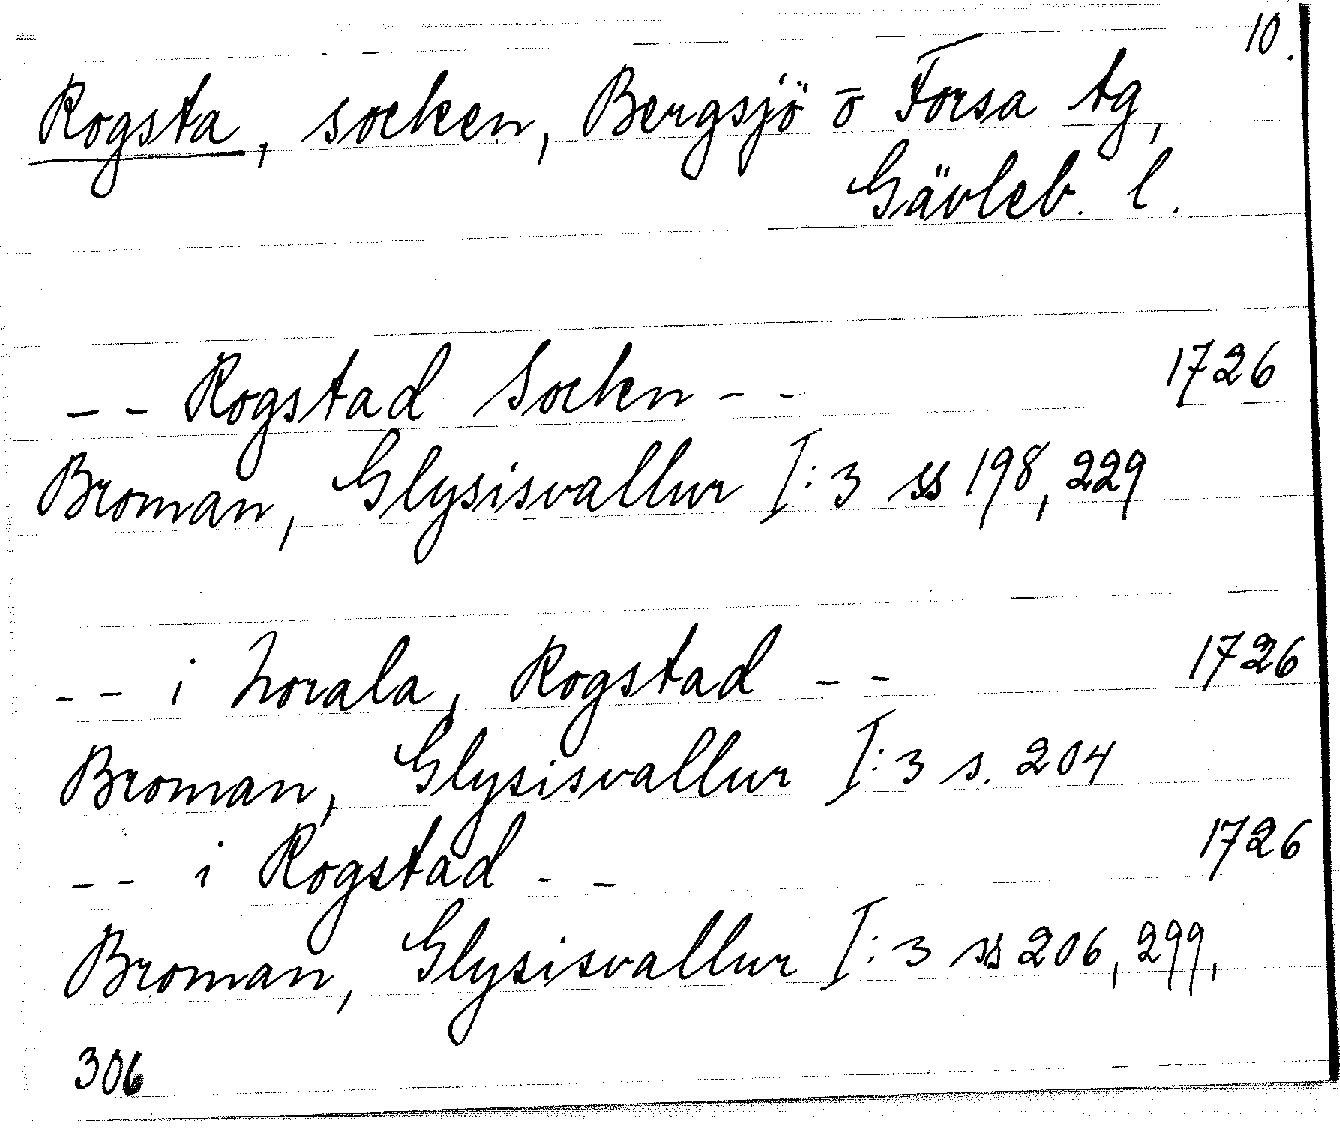 10.
Rogsta, socken, Bergsjö o Forsa tg,
Gävleb. l.
-- Rogstad Sockn -- 1726
Broman, Glysisvallur I:3 ss 198, 229
-- i Norala, Rogstad -- 1726
Broman, Glysisvallur I:3 s. 204
-- i Rogstad -- 1726
Broman, Glysisvallur I:3 ss 206, 299,
306